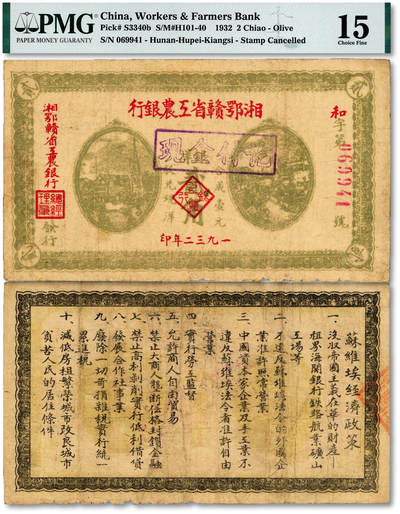 PMG
PAPER MONEY GUARANTY
China, Workers & Farmers Bank
Pick# S3340b S/M#H101-40 1932 2 Chiao - Olive
S/N 069941 - Hunan-Hupei-Kiangsi - Stamp Cancelled
15
Choice Fine
行銀農工省贛鄂湘
湘鄂贛省工農銀行
發行
和字第
069941
號
印年二三九一
蘇維埃經濟政策
一 沒收帝國主義在華的財產
租界海關銀行鉄路航業礦山
工場等
二 不違反蘇維埃法令的外國企
業准許照常營業
三 中國資本家企業及手工業不
違反蘇維埃法令者准許自由
營業
四 實行勞工監督
五 允許商人自由貿易
六 禁止大商人壟斷価格封鎖金融
七 禁止高利剝削實行低利借貸
八 發展合作社事業
九 廢除一切苛捐雜稅實行統一
累進稅
十 減低房租繁榮城市改良城市
貧苦人民的居住條件